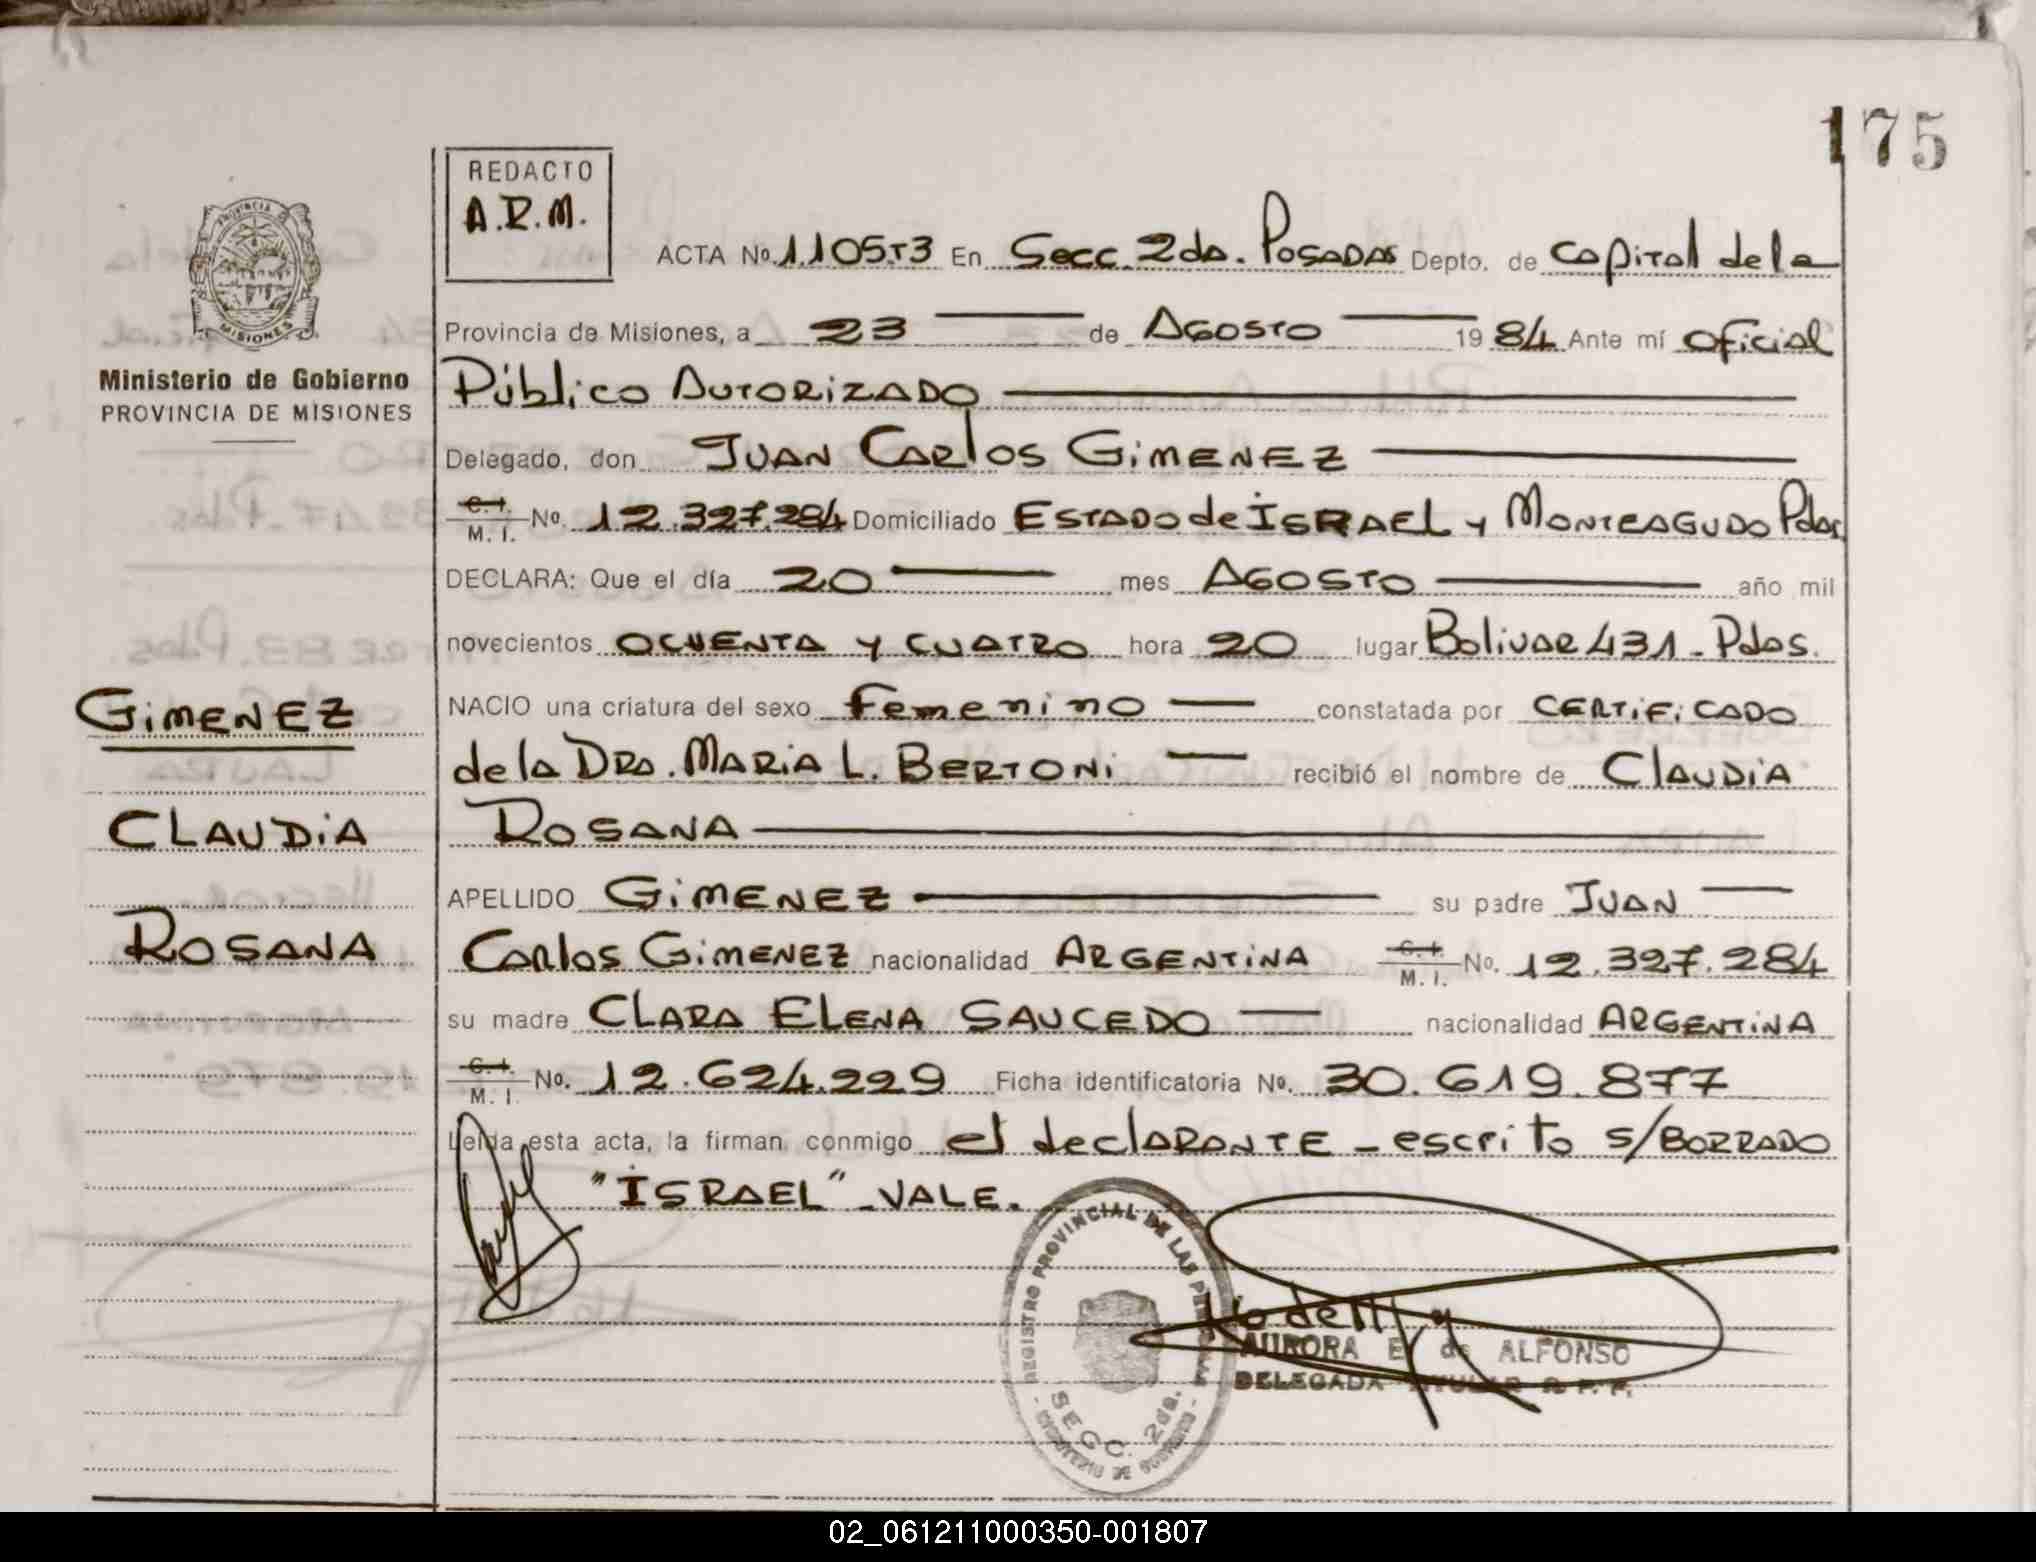 175
REDACTO
A.R.M.
PROVINCIA
MISIONES
Ministerio de Gobierno
PROVINCIA DE MISIONES
ACTA No. En Secc. 2da. Posadas Depto. de Capital de la
Provincia de Misiones, a 23 de Agosto 1984 Ante mí Oficial
Público Autorizado
Delegado, don Juan Carlos Gimenez
C. I.
M. I. No. 12.327.284 Domiciliado Estado de Israel y Monteagudo Pdas.
DECLARA: Que el día 20 mes Agosto año mil
novecientos ochenta y cuatro hora 20 lugar Bolivar 431 - Pdas.
NACIO una criatura del sexo Femenino constatada por certificado
de la Dra. Maria L. Bertoni recibió el nombre de Claudia
Rosana
APELLIDO Gimenez su padre Juan
Carlos Gimenez nacionalidad Argentina C. I. M. I. No. 12.327.284
su madre Clara Elena Saucedo nacionalidad Argentina
C. I.
M. I. No. 12.624.229 Ficha identificatoria No. 30.619.877
Leída esta acta, la firman conmigo el declarante - escrito s/borrado
"Israel" - vale.
GIMENEZ
CLAUDIA
ROSANA
REGISTRO PROVINCIAL DE LAS
SECC. 2da.
AURORA E. de ALFONSO
DELEGADA R. P. P.
02_061211000350-001807